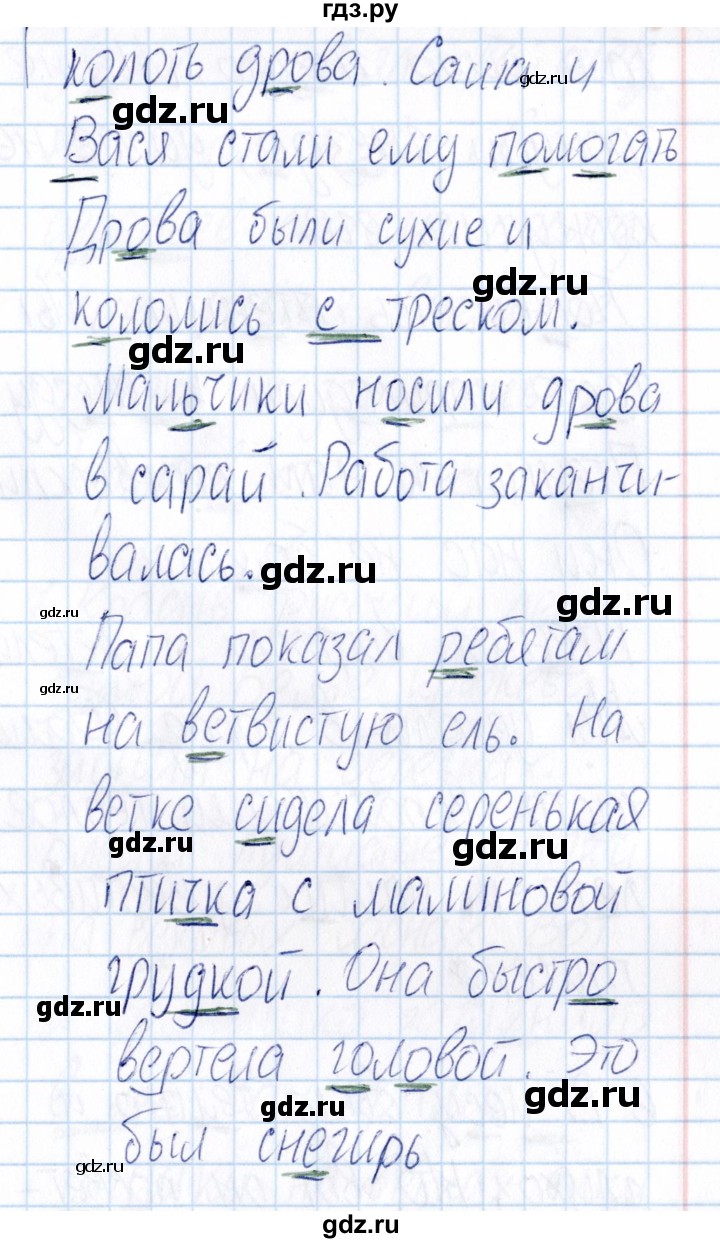 гдз.ру
колоть дрова. Сашка и
gdz.ru
gdz.ru
Вася стали ему помогать
Дрова были сухие и
gdz.ru
кололись с треском.
gdz.ru
Мальчики носили дрова
в сарай. Работа заканчи-
валась.
gdz.ru
gdz.ru
gdz.ru
Папа показал ребятам
gdz.ru
на ветвистую ель. На
ветке сидела серенькая
gdz.ru
gdz.ru
птичка с малиновой
грудкой. Она быстро
gdz.ru
вертела головой. Это
gdz.ru
gdz.ru
был снегирь
gdz.ru
gdz.ru